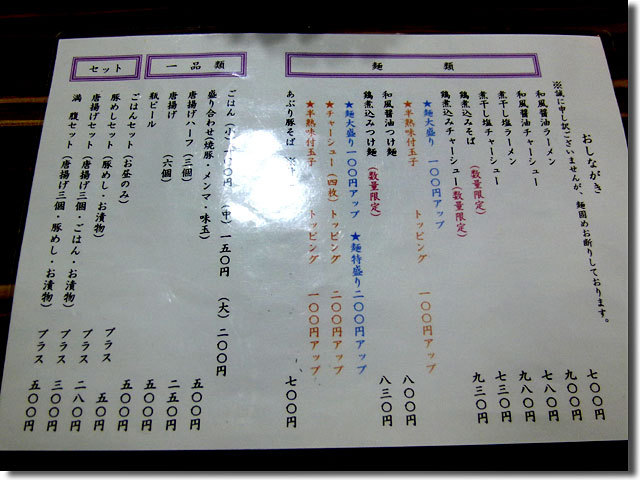 おしながき
※誠に申し訳ございませんが、麺固めお断りしております。
麺類
和風醤油ラーメン 七〇〇円
和風醤油チャーシュー 九〇〇円
煮干し塩ラーメン 七八〇円
煮干し塩チャーシュー 九八〇円
鶏煮込みそば(数量限定) 七三〇円
鶏煮込みチャーシュー(数量限定) 九三〇円
★麺大盛り 一〇〇円アップ
★半熟味付玉子 トッピング 一〇〇円アップ
和風醤油つけ麺 八〇〇円
鶏煮込みつけ麺(数量限定) 八三〇円
★麺大盛り一〇〇円アップ ★麺特盛り二〇〇円アップ
★チャーシュー(四枚)トッピング 二〇〇円アップ
★半熟味付玉子 トッピング 一〇〇円アップ
あぶり豚そば 七〇〇円
一品類
ごはん(小) 円 (中)一五〇円 (大)二〇〇円
盛り合わせ(焼豚・メンマ・味玉) 五〇〇円
唐揚げハーフ(三個) 二五〇円
唐揚げ(六個) 五〇〇円
瓶ビール 五〇〇円
セット
ごはんセット(お昼のみ) プラス 五〇円
豚めしセット(豚めし・お漬物) プラス 二八〇円
唐揚げセット(唐揚げ三個・ごはん・お漬物) プラス 三〇〇円
満腹セット(唐揚げ三個・豚めし・お漬物) プラス 五〇〇円